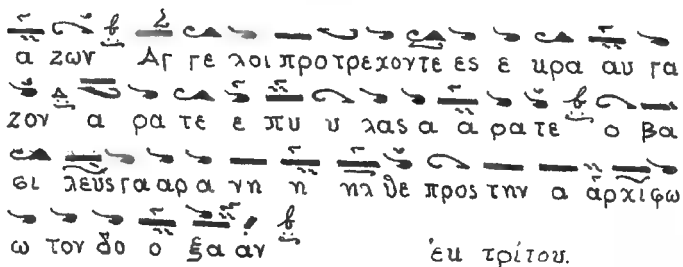 α ζων Αγ γε λοι προ τρε χον τε ες ε κρα αυ γα
ζον α ρα τε ε πυ υ λας α α ρα τε ο βα
σι λευς γα αρ α νη η ηλ θε προς την α αρχιφω
ω τον δο ο ξα αν
ἐκ τρίτου.